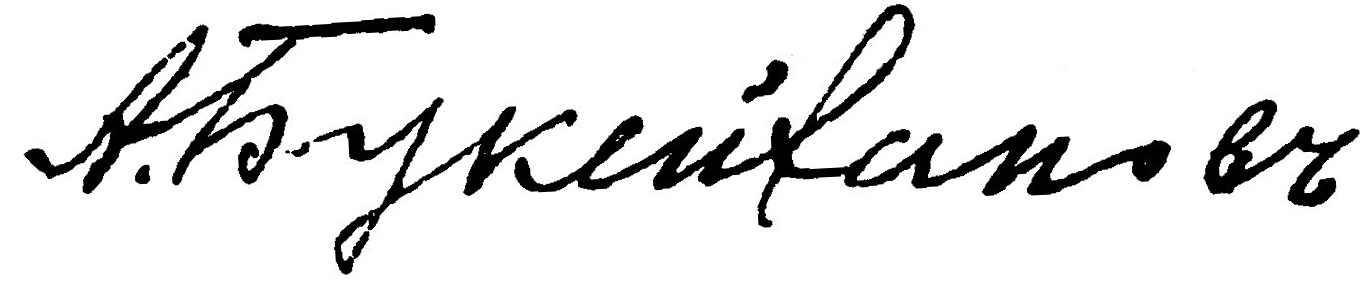 А. Букейхановъ